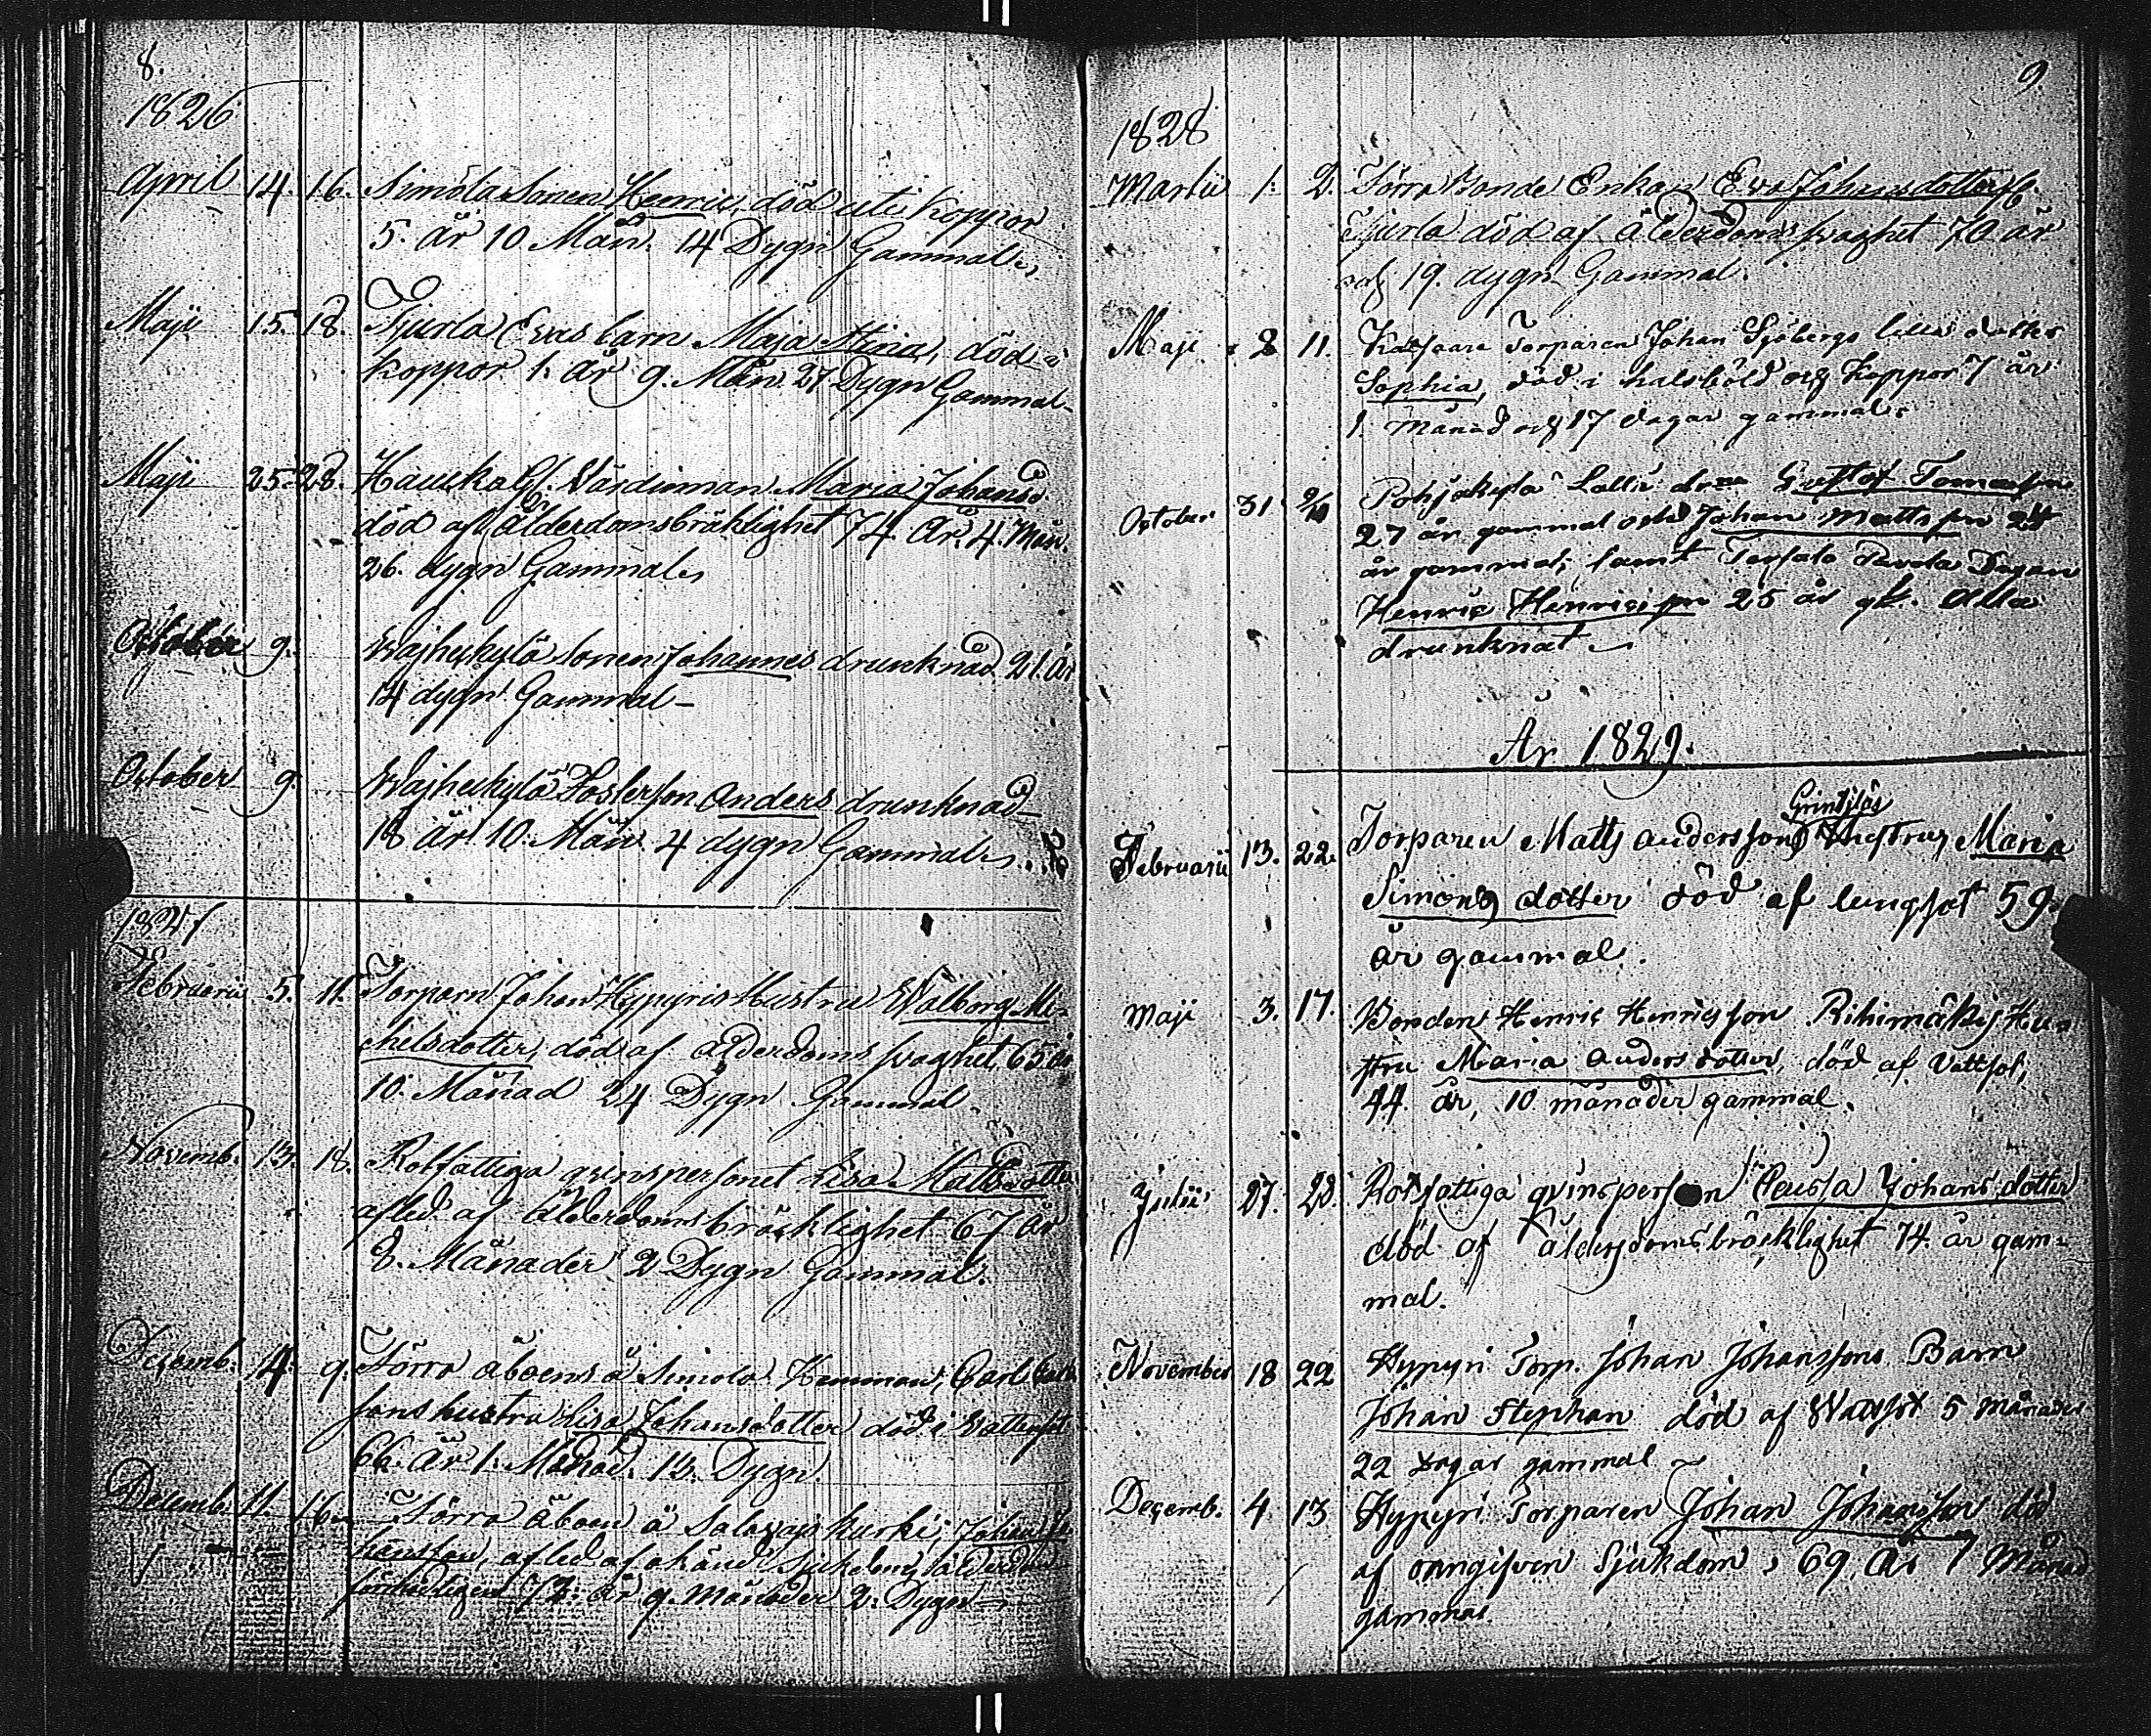 8.
1826
April 14. 16. Simola Sonen Henric, död uti Koppor
5. år 10 Mån. 14 Dygn Gammal
Maji 15. 18. Tjurla Evas barn Maja Stina, död i
Koppor 1. år 9. Mån. 27 Dygn Gammal
Maji 25. 28. Hauska Gl. Värdinnan Maria Johansd.
död af Ålderdomsbräklighet 74. År. 4. Mån.
26. dygn Gammal
October 9. Wajhekylä Sonen Johannes drunknad 21. år
14 dygn Gammal
October 9. Wajhekylä Fosterson Anders drunknad
18 år 10. Mån 4 dygn Gammal
1827
Februarii 5. 11. Torparn Johan Hypyris Hustru Walborg Mi-
chelsdotter, död af ålderdoms svaghet, 65 år
10. Månad 24 Dygn Gammal
Novemb. 13. 18. Rotfattiga qvinspersonet Lisa Mattsdotter
afled. af ålderdoms bräcklighet 67 år
8. Månader 2 Dygn Gammal.
Decemb. 4. 9. Förra åboens å Simola Hemman, Carl
sons hustru Lisa Johansdotter död i Vattusot
66. År 1. Månad. 13. Dygn.
Decemb. 11. 16. Förra Åboen å Kurki, Johan Jo-
hansson, afled af okänd sjukdom,
72. år 9. Månader 2. Dygn
9.
1828
Martii 1. 2. Förra Bonde Enkan Eva Johansdotter
Tjurla död af ålderdoms svaghet 70 år
och 19. dygn Gammal.
Maji 8 11. Torparen Johan Sjöbergs lilla dotter
Sophia, död i halsböld och Koppor 7 år
1. Månad och 17 dagar gammal
October 31 9/10 Pohjakylä Lalli dr Gustof Tomasson
27 år gammal och Johan Mattsson 24
år gammal, samt Pavola Drgan
Henric Henricsson 25 år gl. alla
drunknat
År 1829.
Grindjläs
Februarii 13. 22. Torparen Matts Anderssons Hustru, Maria
Simons dotter död af lungsot 59.
år gammal.
Maji 3. 17. Bonden Henric Henricsson Rihimäkis Hu
stru Maria Anders dotter, död af Vattsot,
44. år, 10 månader gammal.
Julii 27. 28. Rotfattiga qvinsperson Johans dotter
död af ålderdoms bräcklighet 74 år gam-
mal.
November 18 22 Hypyri Torp. Johan Johanssons Barn
Johan Stephan död af Wattsot 5 månader
22 dagar gammal
Decemb. 4 13 Hypyri Torparen Johan Johansson död
af onngifven Sjukdom, 69, år 1 Månad
gammal.